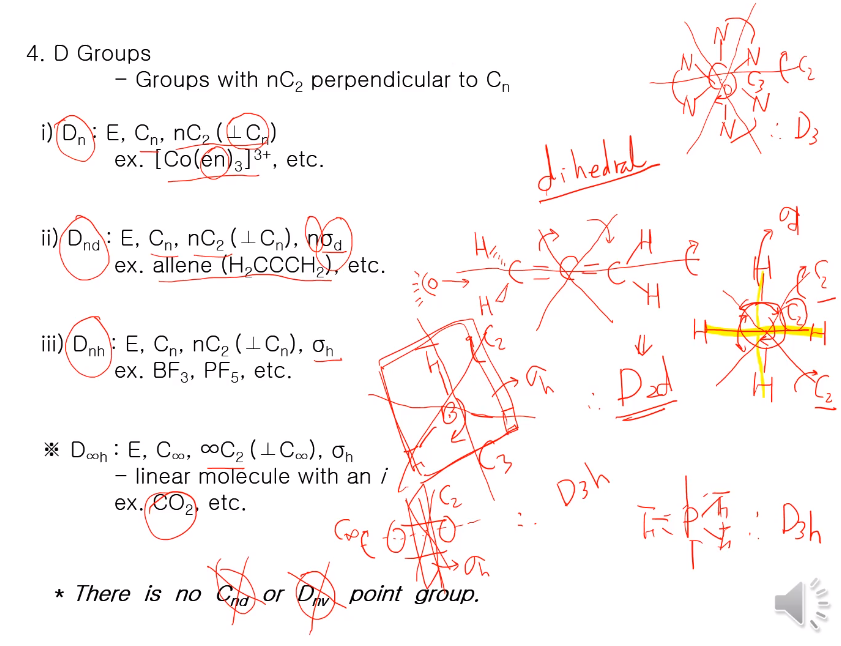 4. D Groups
- Groups with nC₂ perpendicular to Cₙ
i) Dₙ : E, Cₙ, nC₂ (⊥Cₙ)
ex. [Co(en)₃]³⁺, etc.
ii) Dnd : E, Cₙ, nC₂ (⊥Cₙ), nσd
ex. allene (H₂CCCH₂), etc.
iii) Dnh : E, Cₙ, nC₂ (⊥Cₙ), σh
ex. BF₃, PF₅, etc.
※ D∞h : E, C∞, ∞C₂ (⊥C∞), σh
- linear molecule with an i
ex. CO₂, etc.
* There is no Cnd or Dnv point group.
N
N N
C₂
C₃
N N
N
∴ D₃
dihedral
σd
H H
C = C = C
H H
H
C₂
H C₂ H
H C₂
∴ D2d
C₂
σh
B
C₃
∴ D3h
C₂
C∞
σh
P
∴ D3h